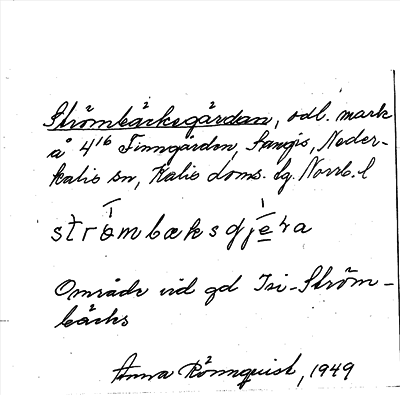 Strömbäcksgårdan, odl. mark
å 4¹⁶ Finngården, Sangis, Neder-
kalix sn, Kalix doms. lg. Norrb. l
strömbæksgjeɳa
Område vid gd Isi-Ström-
bäcks
Anna Rönnquist, 1949